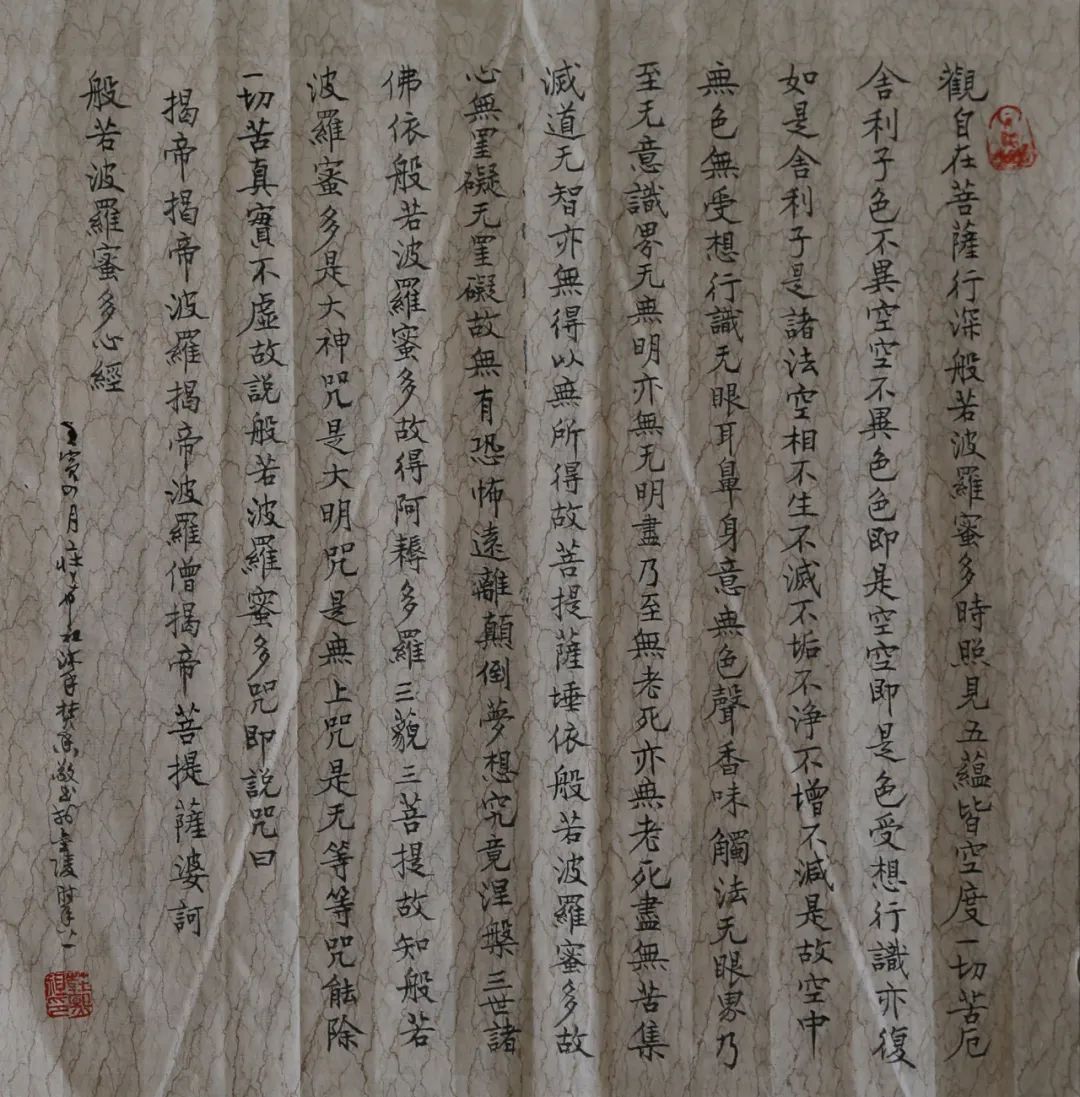 觀自在菩薩行深般若波羅蜜多時照見五蘊皆空度一切苦厄
舍利子色不異空空不異色色即是空空即是色受想行識亦復
如是舍利子是諸法空相不生不滅不垢不净不增不減是故空中
無色無受想行識无眼耳鼻身意無色聲香味觸法无眼界乃
至无意識界无無明亦無无明盡乃至無老死亦無老死盡無苦集
滅道无智亦無得以無所得故菩提薩埵依般若波羅蜜多故
心無罣礙无罣礙故無有恐怖遠離顛倒夢想究竟涅槃三世諸
佛依般若波羅蜜多故得阿耨多羅三藐三菩提故知般若
波羅蜜多是大神咒是大明咒是無上咒是无等等咒能除
一切苦真實不虛故説般若波羅蜜多咒即説咒曰
揭帝揭帝波羅揭帝波羅僧揭帝菩提薩婆訶
般若波羅蜜多心經
寅四月